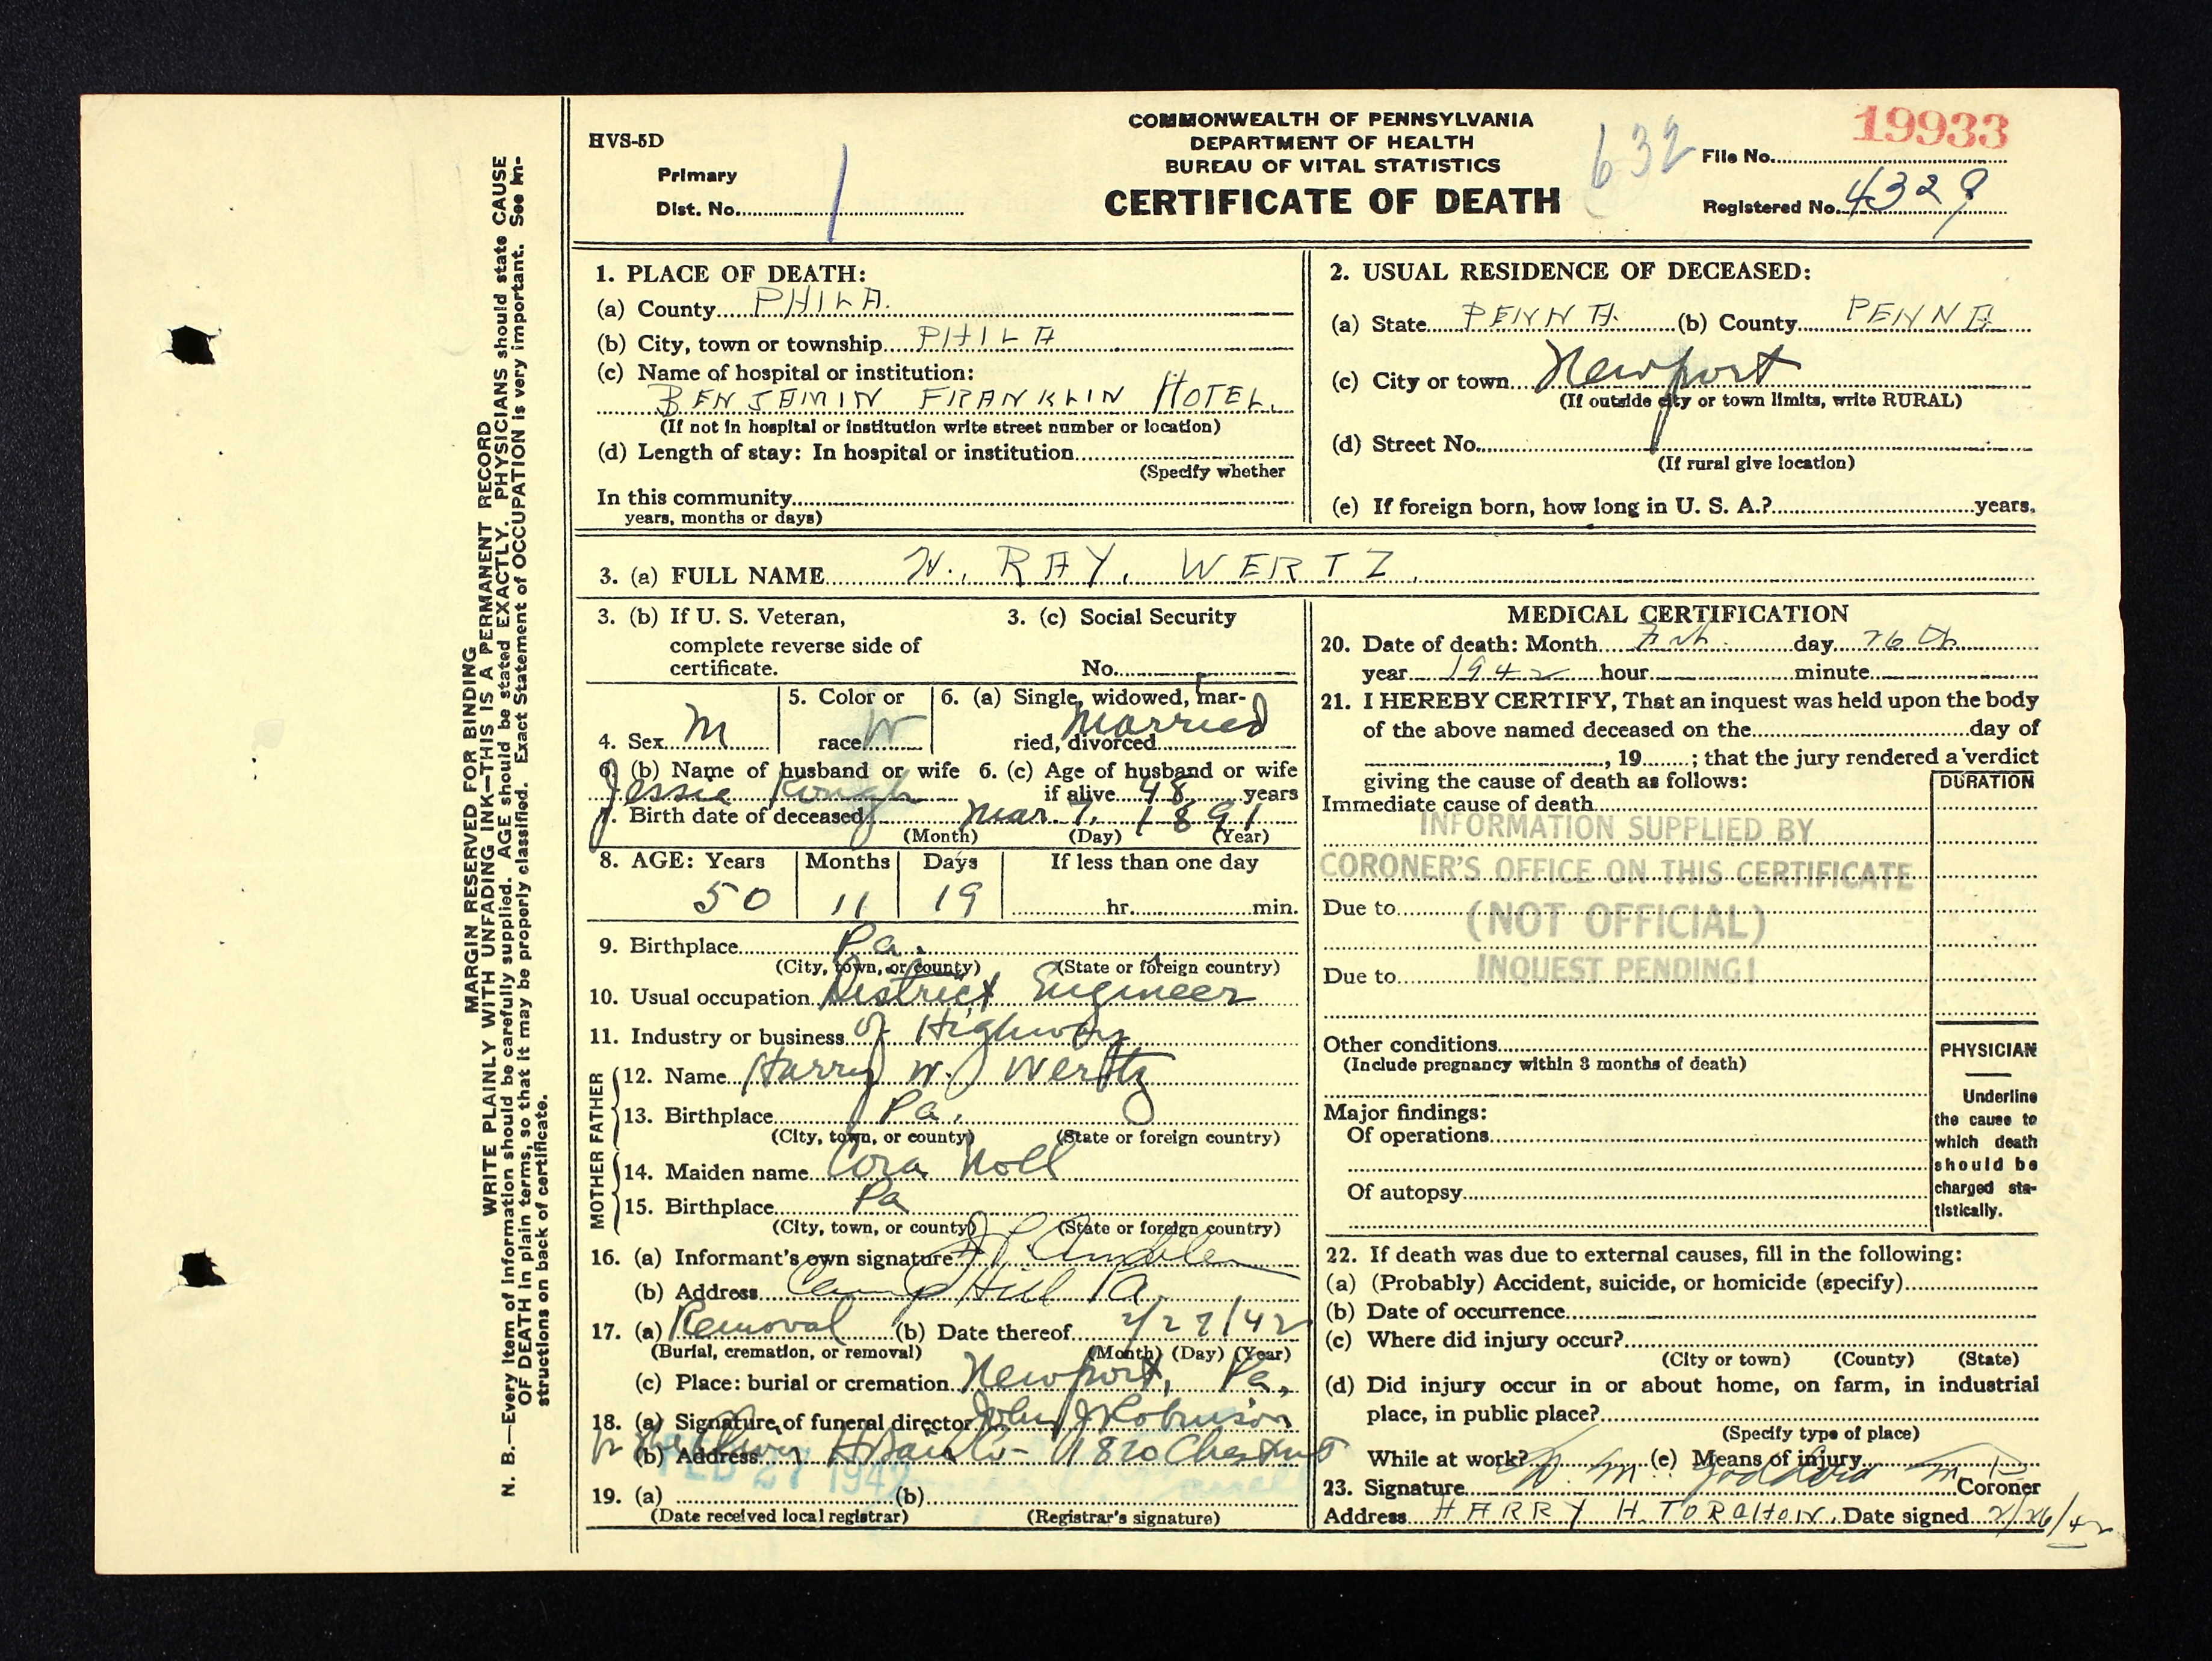 MARGIN RESERVED FOR BINDING
WRITE PLAINLY WITH UNFADING INK—THIS IS A PERMANENT RECORD
N. B.—Every item of information should be carefully supplied. AGE should be stated EXACTLY. PHYSICIANS should state CAUSE
OF DEATH in plain terms, so that it may be properly classified. Exact Statement of OCCUPATION is very important. See in-
structions on back of certificate.
HVS-5D
COMMONWEALTH OF PENNSYLVANIA
DEPARTMENT OF HEALTH
BUREAU OF VITAL STATISTICS
CERTIFICATE OF DEATH
Primary
Dist. No. 1
632
File No. 19933
Registered No. 4329
1. PLACE OF DEATH:
(a) County PHILA.
(b) City, town or township PHILA
(c) Name of hospital or institution:
BENJAMIN FRANKLIN HOTEL.
(If not in hospital or institution write street number or location)
(d) Length of stay: In hospital or institution
(Specify whether
In this community
years, months or days)
2. USUAL RESIDENCE OF DECEASED:
(a) State PENNA. (b) County PENNA
(c) City or town Newport
(If outside city or town limits, write RURAL)
(d) Street No.
(If rural give location)
(e) If foreign born, how long in U. S. A.? years.
3. (a) FULL NAME RAY. WERTZ
3. (b) If U. S. Veteran,
complete reverse side of
certificate.
3. (c) Social Security
No.
4. Sex M
5. Color or
race W
6. (a) Single, widowed, mar-
ried, divorced Married
6. (b) Name of husband or wife
Jessie Rough
6. (c) Age of husband or wife
if alive 48 years
7. Birth date of deceased Mar. 7, 1891
(Month) (Day) (Year)
8. AGE: Years Months Days If less than one day
50 11 19 hr. min.
9. Birthplace Pa.
(City, town, or county) (State or foreign country)
10. Usual occupation District Engineer
11. Industry or business of Highway
FATHER
12. Name Harry W. Wertz
13. Birthplace Pa.
(City, town, or county) (State or foreign country)
MOTHER
14. Maiden name Cora Noll
15. Birthplace Pa
(City, town, or county) (State or foreign country)
16. (a) Informant's own signature
(b) Address Camp Hill Pa
17. (a) Removal (b) Date thereof 2/27/42
(Burial, cremation, or removal) (Month) (Day) (Year)
(c) Place: burial or cremation Newport, Pa.
18. (a) Signature of funeral director John J Robinson
(b) Address Oliver H Bair Co - 1820 Chestnut
FEB 27 1942
19. (a) (b)
(Date received local registrar) (Registrar's signature)
MEDICAL CERTIFICATION
20. Date of death: Month Feb. day 26th
year 1942 hour minute
21. I HEREBY CERTIFY, That an inquest was held upon the body
of the above named deceased on the day of
, 19 ; that the jury rendered a verdict
giving the cause of death as follows:
DURATION
Immediate cause of death
INFORMATION SUPPLIED BY
CORONER'S OFFICE ON THIS CERTIFICATE
Due to
(NOT OFFICIAL)
Due to
INQUEST PENDING!
Other conditions
(Include pregnancy within 3 months of death)
Major findings:
Of operations
Of autopsy
PHYSICIAN
Underline
the cause to
which death
should be
charged sta-
tistically.
22. If death was due to external causes, fill in the following:
(a) (Probably) Accident, suicide, or homicide (specify)
(b) Date of occurrence
(c) Where did injury occur?
(City or town) (County) (State)
(d) Did injury occur in or about home, on farm, in industrial
place, in public place?
(Specify type of place)
While at work? (e) Means of injury
23. Signature W. M. Goddard M D Coroner
Address HARRY H. Date signed 2/26/42